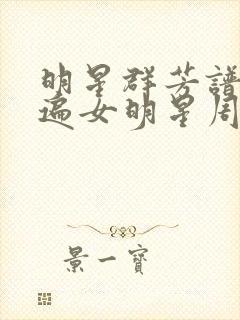 明星群芳譜
遍女明星周
景一寶